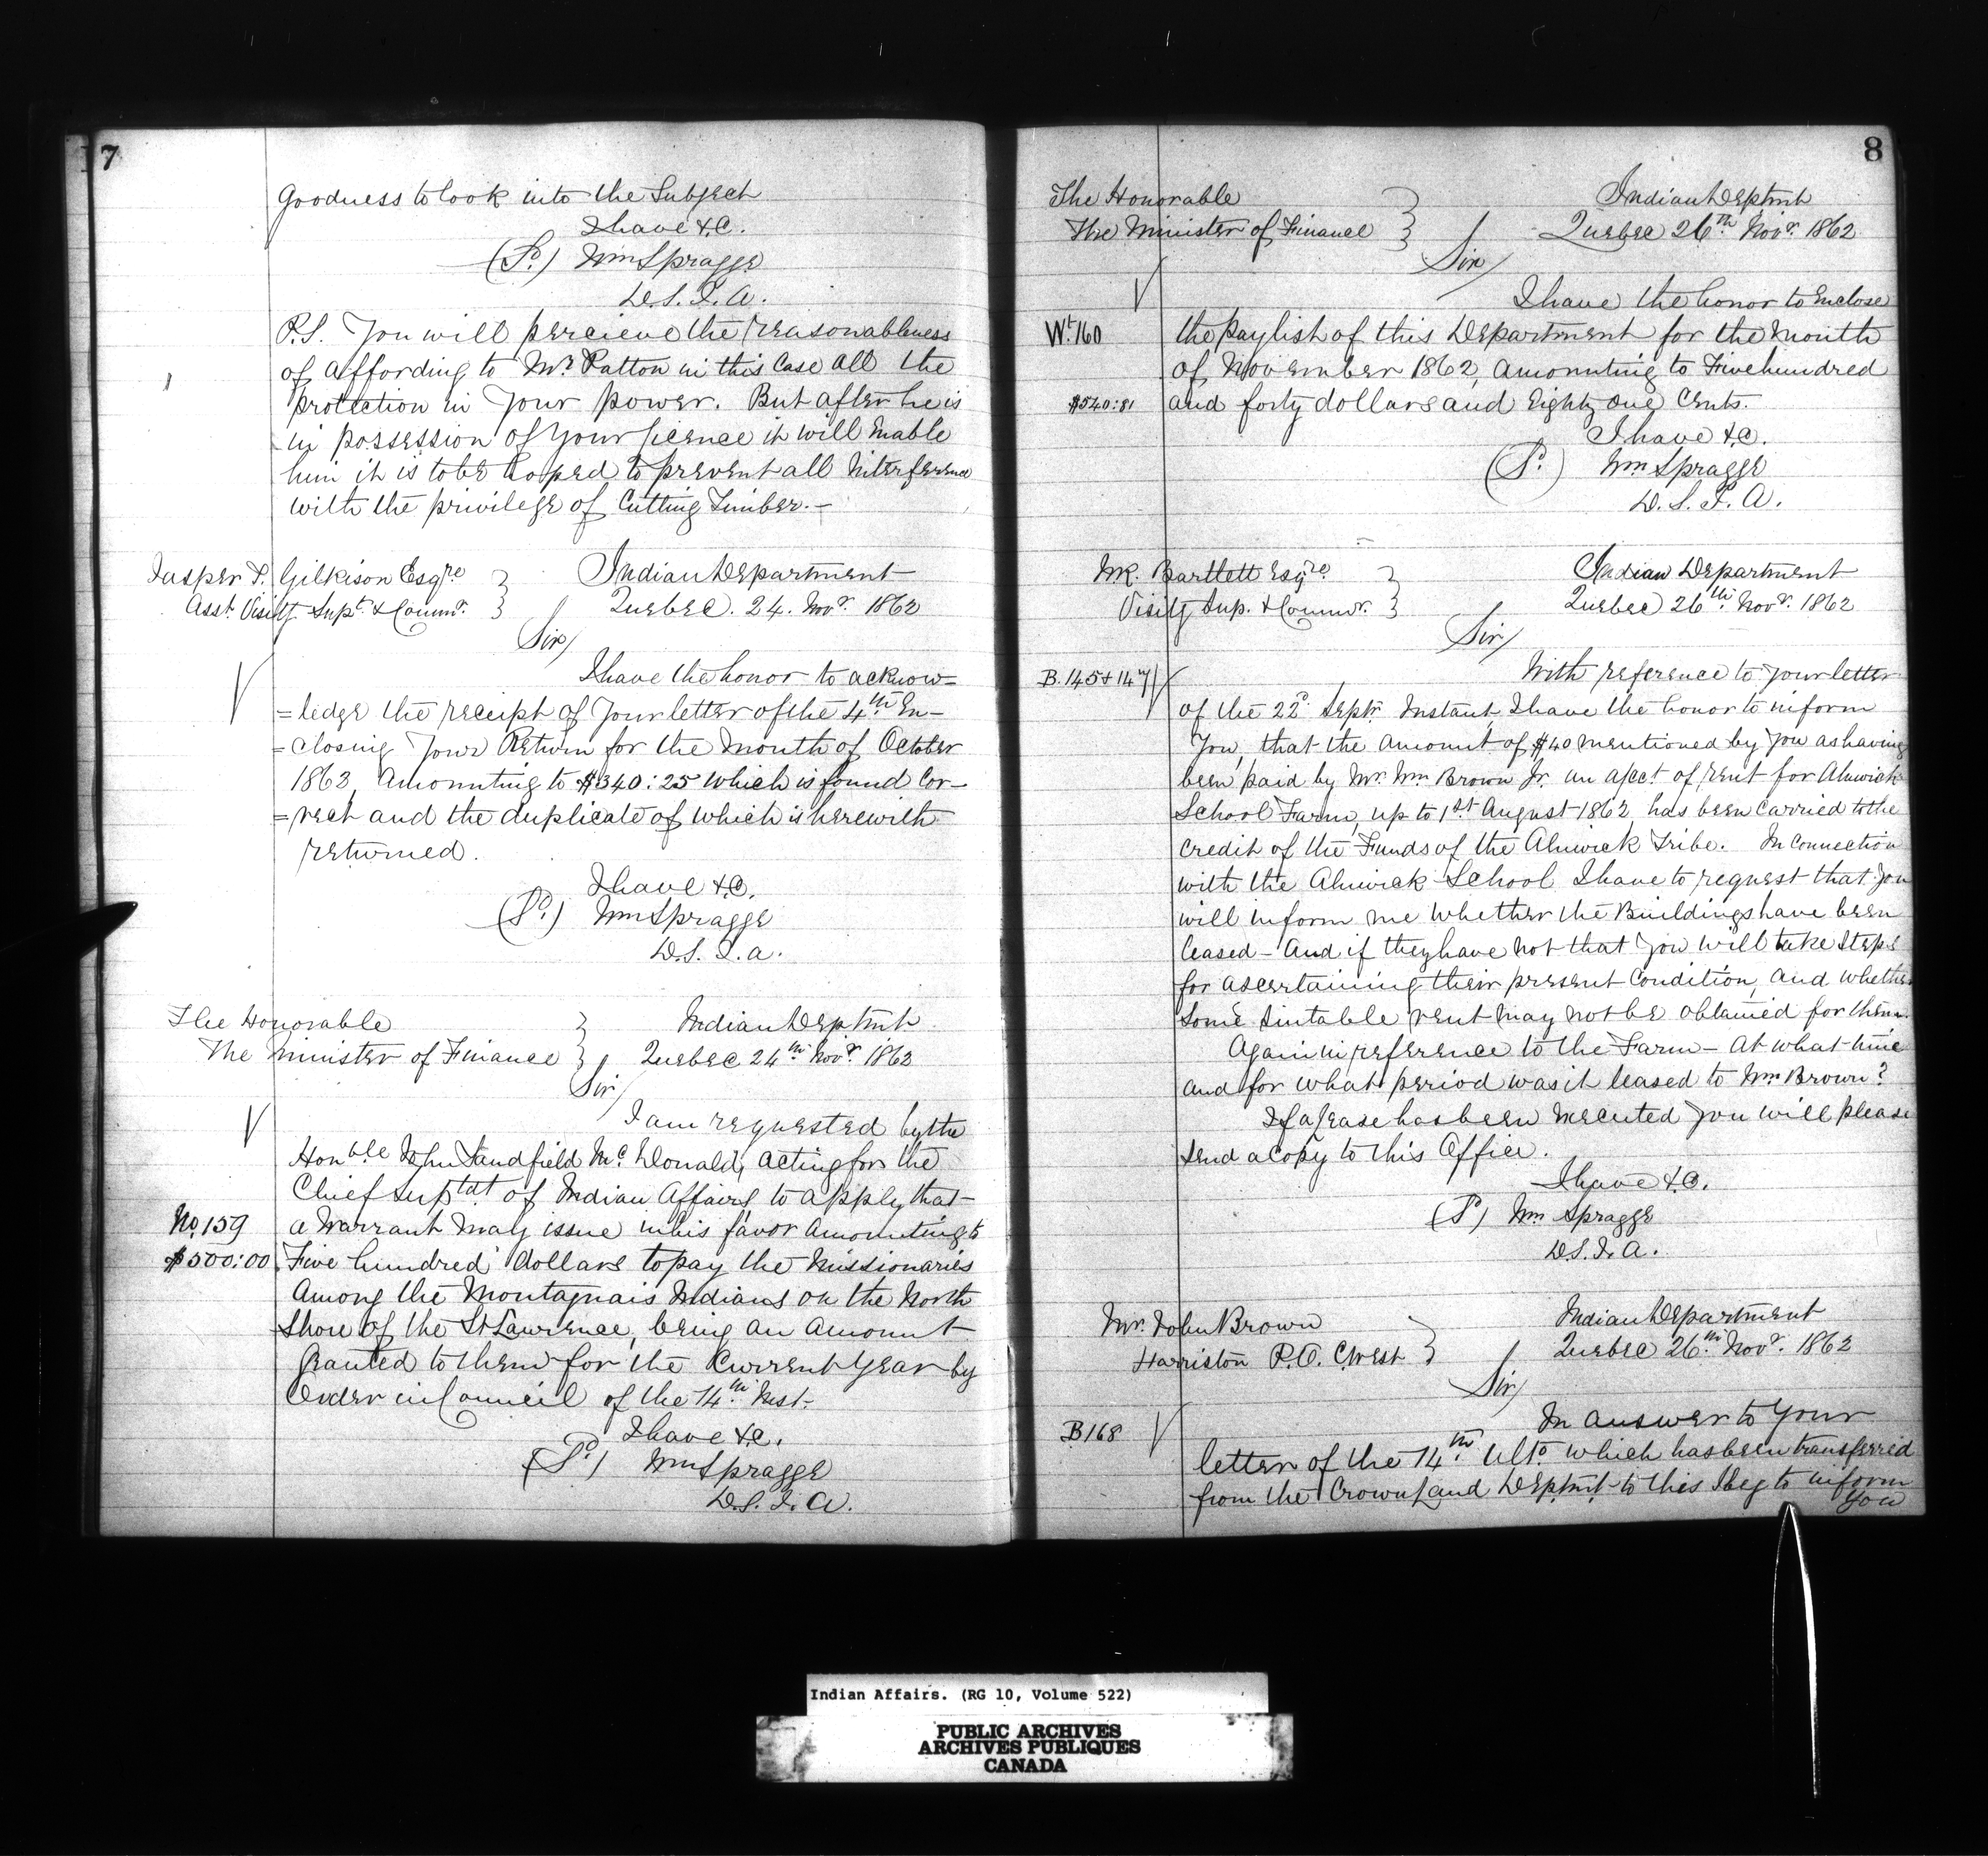 7
Goodness to look into the Subject
I have &c.
(Sd.) Wm Spragge
D. S. I. A.
P.S. You will percieve the reasonableness
of affording to Mr. Patton in this Case all the
protection in your power. But after he is
in possession of your licence it will Enable
him it is to be hoped to prevent all interference
with the privilege of Cutting Timber.—
Jasper T. Gilkison Esqre
Asst. Visitg Supt. & Commr.
Indian Department
Quebec. 24. Novr. 1862
Sir/
I have the honor to acknow=
=ledge the receipt of your letter of the 4th En-
=closing your Return for the Month of October
1862, Amounting to $340:25 which is found Cor-
=rect and the duplicate of which is herewith
returned.
I have &c.
(Sd.) Wm Spragge
D.S. I. a.
The Honorable
The Minister of Finance
Indian Deptmt
Quebec 24th Novr. 1862
Sir/
I am requested by the
Honble John Sandfield McDonald, acting for the
Chief Suptdt of Indian Affairs, to apply that
No. 159
a Warrant may issue in his favor Amounting to
$500:00
Five hundred dollars to pay the Missionaries
Among the Montagnais Indians on the North
Shore of the St Lawrence, being an Amount
Granted to them for the Current Year by
Order in Council of the 14th Inst.
I have &c.
(Sd.) Wm Spragge
D.S. I. A.
8
The Honorable
The Minister of Finance
Indian Deptmt
Quebec 26th Novr. 1862
Sir/
I have the honor to Enclose
Wt. 160
the paylist of this Department for the month
of November 1862, Amounting to Five hundred
$540:81
and forty dollars and Eighty one Cents.
I have &c.
(Sd.) Wm Spragge
D. S. I. A.
W.R. Bartlett Esqre.
Visitg Sup. & Commr.
Indian Department
Quebec 26th Novr. 1862
Sir/
B. 145 & 147
With reference to your letter
of the 22d. Septr. Instant, I have the honor to inform
You, that the Amount of $40 mentioned by you as having
been paid by Mr. Wm Brown Jr. on a/cct of rent for Alnwick
School Farm, up to 1st August 1862, has been Carried to the
Credit of the Funds of the Alnwick Tribe. In Connection
with the Alnwick School I have to request that you
will inform me whether the Buildings have been
leased – And if they have not that you will take Steps
for ascertaining their present Condition, and whether
some suitable rent may not be obtained for them.
Again in reference to the Farm – at what time
and for what period was it leased to Wm Brown?
If a lease has been executed you will please
send a Copy to this Office.
I have &c.
(Sd) Wm Spragge
D.S. I. A.
Mr. John Brown
Harriston P.O. C.West
Indian Department
Quebec 26th Novr. 1862
Sir/
B 168
In answer to your
letter of the 14th Ulto. which has been transferred
from the Crown Land Deptmt to this I beg to inform
You
Indian Affairs. (RG 10, Volume 522)
PUBLIC ARCHIVES
ARCHIVES PUBLIQUES
CANADA